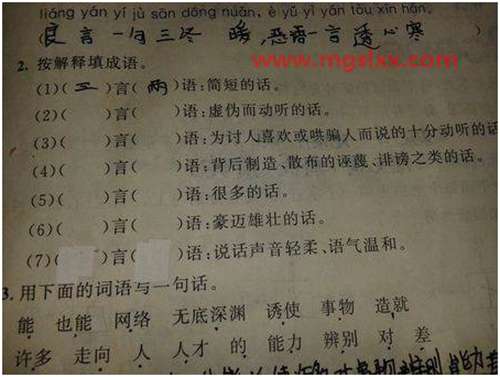 liáng yán yí jù sān dōng nuǎn, è yǔ yì yán tòu xīn hán.
(良言一句三冬 暖,恶语一言透心寒
www.mgslxx.com
2. 按解释填成语。
(1)( 三 )言( 两 )语:简短的话。
(2)( )言( )语:虚伪而动听的话。
(3)( )言( )语:为讨人喜欢或哄骗人而说的十分动听的话
(4)( )言( )语:背后制造、散布的诬蔑、诽谤之类的话。
(5)( )言( )语:很多的话。
(6)( )言( )语:豪迈雄壮的话。
(7)( )言( )语:说话声音轻柔、语气温和。
3. 用下面的词语写一句话。
能 也能 网络 无底深渊 诱使 事物 造就
许多 走向 人 人才 的 能力 辨别 对 差